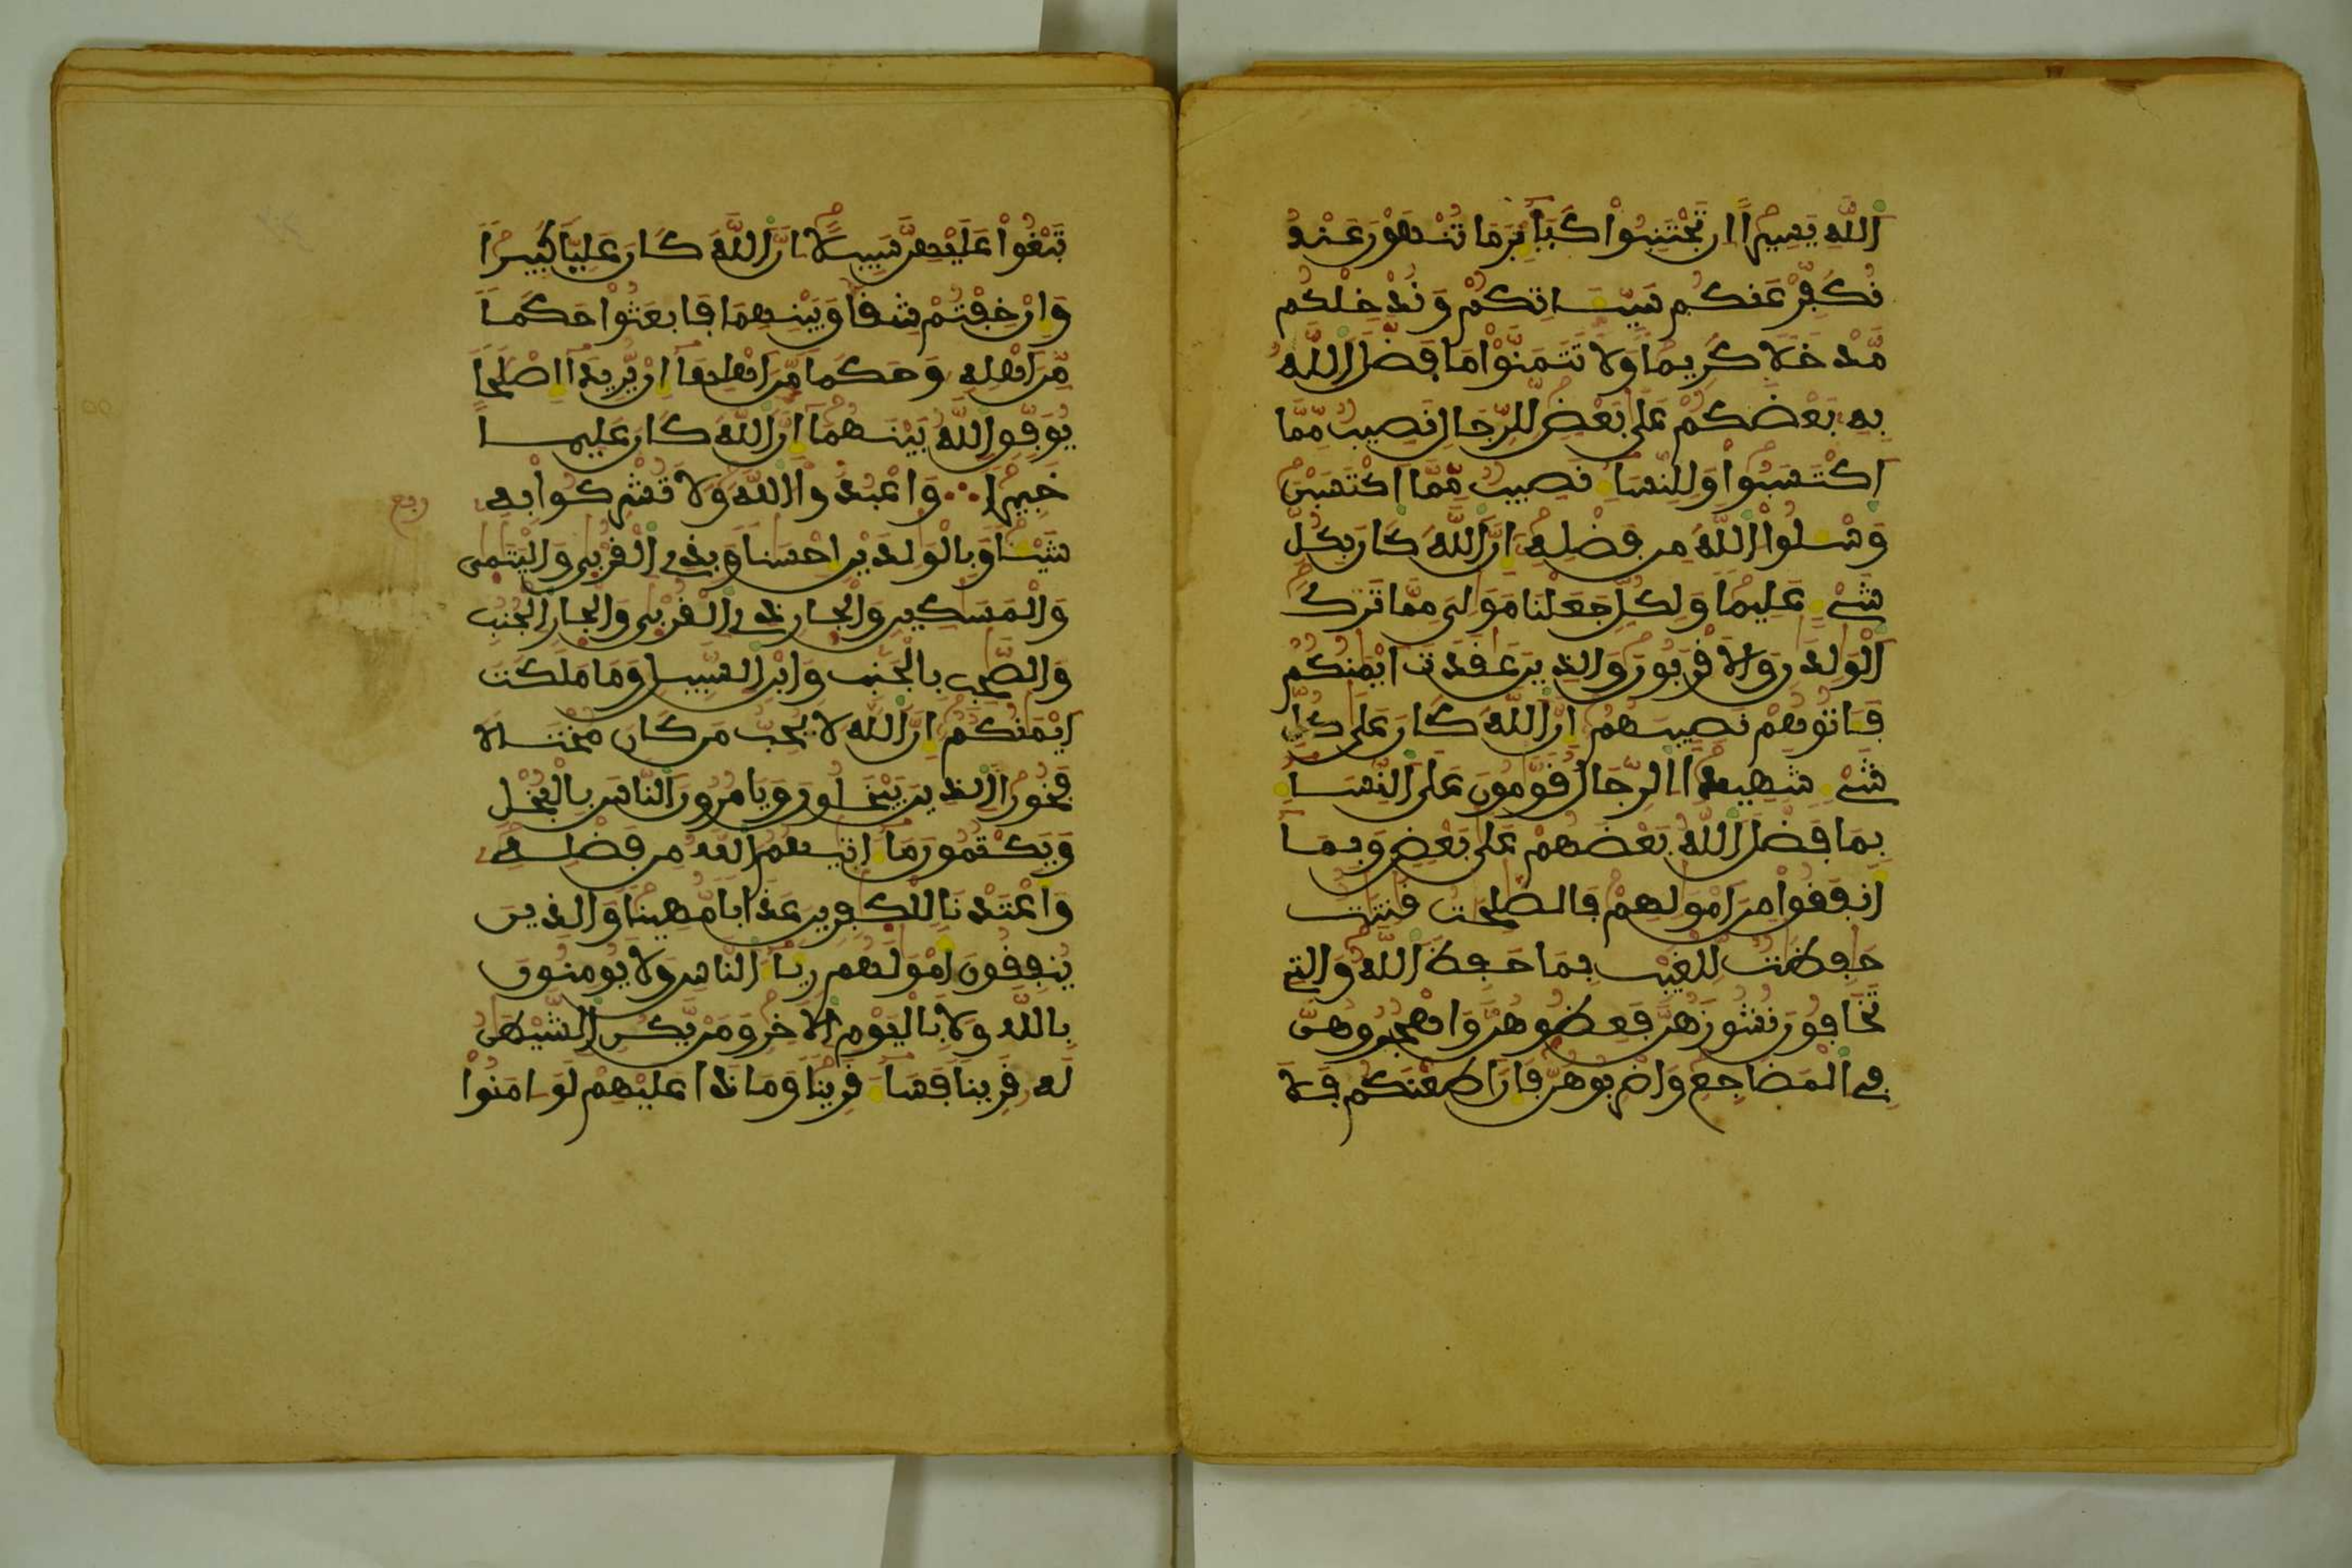 اللَّهِ يَسِيرًا اِن تَجْتَنِبُوا۟ كَبَآئِرَ مَا تُنْهَوْنَ عَنْهُ
نُكَفِّرْ عَنكُمْ سَيِّـَٔاتِكُمْ وَنُدْخِلْكُم
مَّدْخَلًا كَرِيمًا وَلَا تَتَمَنَّوْا۟ مَا فَضَّلَ اللَّهُ
بِهِ بَعْضَكُمْ عَلَى بَعْضٍ لِّلرِّجَالِ نَصِيبٌ مِّمَّا
اَكْتَسَبُوا۟ وَلِلنِّسَآءِ نَصِيبٌ مِّمَّا اَكْتَسَبْنَ
وَسْـَٔلُوا۟ اللَّهَ مِن فَضْلِهِ إِنَّ اللَّهَ كَانَ بِكُلِّ
شَےْءٍ عَلِيمًا وَلِكُلٍّ جَعَلْنَا مَوَٰلِىَ مِمَّا تَرَكَ
اَلْوَٰلِدَٰنِ وَالَاقْرَبُونَ وَالذِينَ عَٰقَدَتَ اَيْمَٰنُكُمْ
فَـَٔاتُوهُمْ نَصِيبَهُمُ إِنَّ اللَّهَ كَانَ عَلَى كُلِّ
شَےْءٍ شَهِيدًا الرِّجَالُ قَوَّٰمُونَ عَلَى النِّسَآءِ
بِمَا فَضَّلَ اللَّهُ بَعْضَهُمْ عَلَى بَعْضٍ وَبِمَا
أَنفَقُوا۟ مِنَ اَمْوَٰلِهِمْ فَالصَّٰلِحَٰتُ قَٰنِتَٰتٌ
حَٰفِظَٰتٌ لِّلْغَيْبِ بِمَا حَفِظَ اللَّهُ وَالتِے
تَخَافُونَ نُشُوزَهُنَّ فَعِظُوهُنَّ وَاهْجُرُوهُنَّ
فِے الْمَضَاجِعِ وَاضْرِبُوهُنَّ فَإِنَ اَطَعْنَكُمْ فَلَا
تَبْغُوا۟ عَلَيْهِنَّ سَبِيلًا اِنَّ اللَّهَ كَانَ عَلِيًّا كَبِيرًا
وَإِنْ خِفْتُمْ شِقَاقَ بَيْنِهِمَا فَابْعَثُوا۟ حَكَمًا
مِّنَ اَهْلِهِ وَحَكَمًا مِّنَ اَهْلِهَآ إِنْ يُّرِيدَآ إِصْلَٰحًا
يُوَفِّقِ اللَّهُ بَيْنَهُمَآ إِنَّ اللَّهَ كَانَ عَلِيمًا
خَبِيرًا وَاعْبُدُوا۟ اللَّهَ وَلَا تُشْرِكُوا۟ بِهِ
ربع
شَيْـًٔا وَبِالْوَٰلِدَيْنِ إِحْسَٰنًا وَبِذِے الْقُرْبَىٰ وَالْيَتَٰمَىٰ
وَالْمَسَٰكِينِ وَالْجَارِ ذِے الْقُرْبَىٰ وَالْجَارِ الْجُنُبِ
وَالصَّٰحِبِ بِالْجَنبِ وَابْنِ السَّبِيلِ وَمَا مَلَكَتَ
اَيْمَٰنُكُمُ إِنَّ اللَّهَ لَا يُحِبُّ مَن كَانَ مُخْتَالًا
فَخُورًا الذِينَ يَبْخَلُونَ وَيَامُرُونَ النَّاسَ بِالْبُخْلِ
وَيَكْتُمُونَ مَآ ءَاتَىٰهُمُ اللَّهُ مِن فَضْلِهِ
وَأَعْتَدْنَا لِلْكَٰفِرِينَ عَذَابًا مُّهِينًا وَالذِينَ
يُنفِقُونَ أَمْوَٰلَهُمْ رِئَآءَ النَّاسِ وَلَا يُومِنُونَ
بِاللَّهِ وَلَا بِالْيَوْمِ الَاخِرِ وَمَنْ يَّكُنِ الشَّيْطَٰنُ
لَهُ قَرِينًا فَسَآءَ قَرِينًا وَمَاذَا عَلَيْهِمْ لَوَ اٰمَنُوا۟